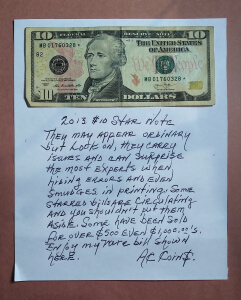 10 FEDERAL RESERVE NOTE THE UNITED STATES OF AMERICA 10
MB 01760328 *
B2
MB 01760328 *
10 TEN DOLLARS 10
2013 $10 STAR NOTE
They may appear ordinary
but look on, they carry
issues and can surprise
the most experts when
hiding errors and even
smudges in printing. Some
starred bills are circulating
and you shouldn't put them
aside. Some have been sold
for over $500 even $1,000.00's.
Enjoy my rare bill shown
here. AC Coin$.